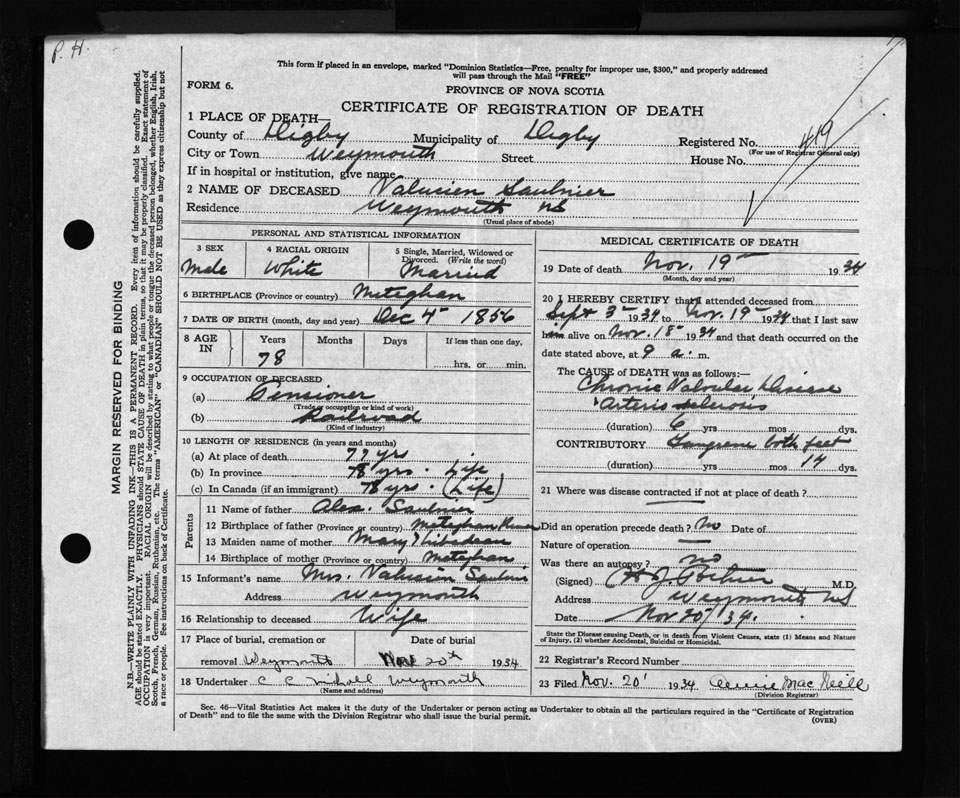 P. H.
This form if placed in an envelope, marked "Dominion Statistics—Free, penalty for improper use, $300," and properly addressed
will pass through the Mail "FREE"
FORM 6.
PROVINCE OF NOVA SCOTIA
CERTIFICATE OF REGISTRATION OF DEATH
1 PLACE OF DEATH—
County of Digby Municipality of Digby Registered No. 419
(For use of Registrar General only)
City or Town Weymouth Street House No.
If in hospital or institution, give name
2 NAME OF DECEASED Valusien Saulnier
Residence Weymouth NS
(Usual place of abode)
PERSONAL AND STATISTICAL INFORMATION
3 SEX 4 RACIAL ORIGIN 5 Single, Married, Widowed or
Divorced. (Write the word)
Male White Married
6 BIRTHPLACE (Province or country) Meteghan
7 DATE OF BIRTH (month, day and year) Dec 4th 1856
8 AGE IN Years Months Days If less than one day,
78 hrs. or min.
9 OCCUPATION OF DECEASED
(a) Pensioner
(Trade or occupation or kind of work)
(b) Railroad
(Kind of industry)
10 LENGTH OF RESIDENCE (in years and months)
(a) At place of death 77 yrs
(b) In province 78 yrs. Life
(c) In Canada (if an immigrant) 78 yrs. (Life)
Parents
11 Name of father Alex. Saulnier
12 Birthplace of father (Province or country) Meteghan River
13 Maiden name of mother Mary Thibedeau
14 Birthplace of mother (Province or country) Meteghan
15 Informant's name Mrs. Valusien Saulnier
Address Weymouth
16 Relationship to deceased Wife
17 Place of burial, cremation or Date of burial
removal Weymouth Nov 20th 1934
18 Undertaker C C Nichol Weymouth
(Name and address)
MEDICAL CERTIFICATE OF DEATH
19 Date of death Nov. 19th 1934
(Month, day and year)
20 I HEREBY CERTIFY that I attended deceased from
Sept 3rd 1934 to Nov. 19th 1934 that I last saw
him alive on Nov. 18th 1934 and that death occurred on the
date stated above, at 9 a. m.
The CAUSE of DEATH was as follows:—
Chronic Valvular Disease
Arterio sclerosis
(duration) 6 yrs mos dys.
CONTRIBUTORY Gangrene both feet
(duration) yrs mos 14 dys.
21 Where was disease contracted if not at place of death? —
Did an operation precede death? No Date of
Nature of operation —
Was there an autopsy? no
(Signed) H. J. Pothier M.D.
Address Weymouth NS
Date Nov 20/34.
State the Disease causing Death, or in death from Violent Causes, state (1) Means and Nature
of Injury, (2) whether Accidental, Suicidal or Homicidal.
22 Registrar's Record Number
23 Filed Nov. 20' 1934 Annie MacNeill
(Division Registrar)
Sec. 46—Vital Statistics Act makes it the duty of the Undertaker or person acting as Undertaker to obtain all the particulars required in the "Certificate of Registration
of Death" and to file the same with the Division Registrar who shall issue the burial permit.
(OVER)
MARGIN RESERVED FOR BINDING
N.B.—WRITE PLAINLY WITH UNFADING INK—THIS IS A PERMANENT RECORD. Every item of information should be carefully supplied.
AGE should be stated EXACTLY. PHYSICIANS should STATE CAUSE OF DEATH in plain terms, so that it may be properly classified. Exact statement of
OCCUPATION is very important. RACIAL ORIGIN will be described by stating to what people or tongue the deceased person belonged, whether English, Irish,
Scotch, French, German, Russian, Ruthenian, etc. The terms "AMERICAN" or "CANADIAN" SHOULD NOT BE USED as they express citizenship but not
a race or people. See instructions on back of Certificate.